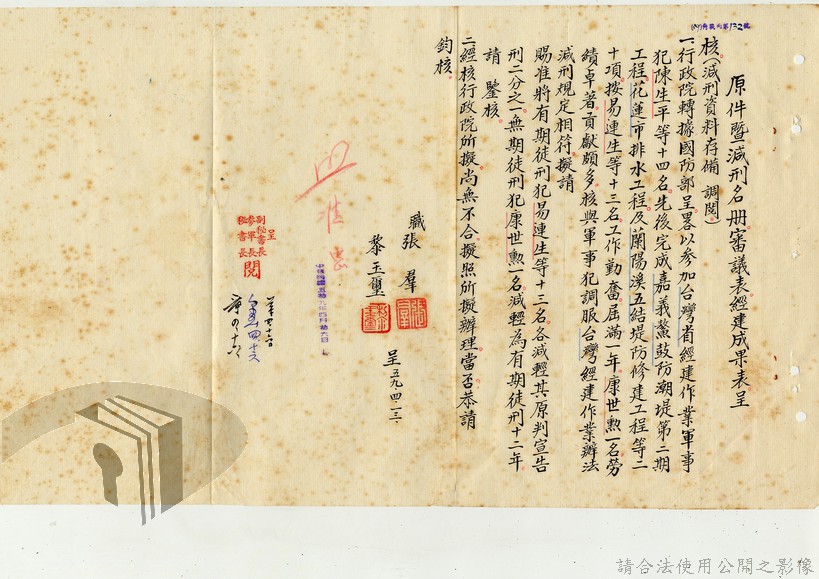 原件暨減刑名册審議表經建成果表呈
核(減刑資料存備調閱)
一、行政院轉據國防部呈畧以參加台灣省經建作業軍事
犯陳生平等十四名先後完成嘉義鰲鼓防潮堤第二期
工程花蓮市排水工程及蘭陽溪五結堤防修建工程等二
十項按易連生等十三名工作勤奮屆滿一年康世勲一名勞
績卓著貢獻頗多核與軍事犯調服台灣經建作業辦法
減刑規定相符擬請
賜准將有期徒刑犯易連生等十三名各減輕其原判宣告
刑二分之一無期徒刑犯康世勲一名減輕為有期徒刑十二年
請 鑒核
二、經核行政院所擬尚無不合擬照所擬辦理當否恭請
鈞核
職張羣
黎玉璽
呈 五九、四、一三、
呈
副秘書長
參軍長
秘書長
閱
請合法使用公開之影像